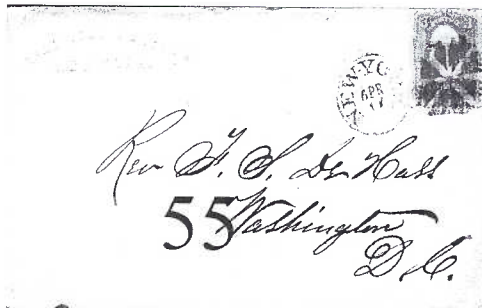 NEW-YO
APR
17
Rev F. S. De Hass
55
Washington
D.C.